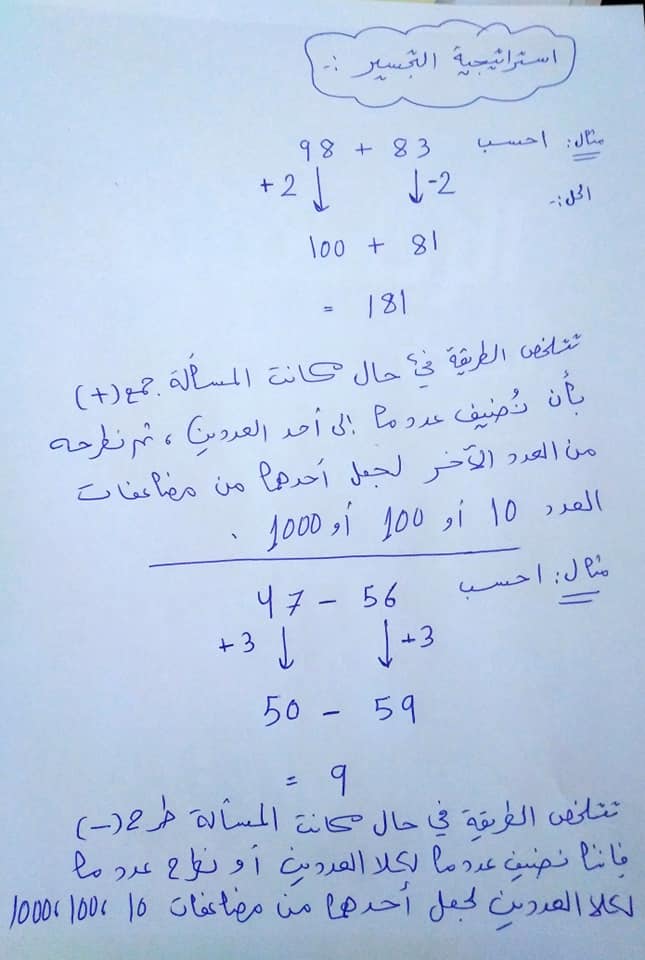 استراتيجية التجسير :-
مثال: احسب 98 + 83
+2 ↓ ↓ -2
الحل:-
100 + 81
= 181
تتلخص الطريقة في حال كانت المسألة جمع (+)
بأن نُضيف عدد ما إلى أحد العددين ، ثم نطرحه
من العدد الآخر لجعل أحدهما من مضاعفات
العدد 10 أو 100 أو 1000 .
مثال: احسب 47 - 56
+3 ↓ ↓ +3
50 - 59
= 9
تتلخص الطريقة في حال كانت المسألة طرح (-)
فإننا نضيف عدد ما لكلا العددين أو نطرح عدد ما
لكلا العددين لجعل أحدهما من مضاعفات 10 ، 100 ، 1000